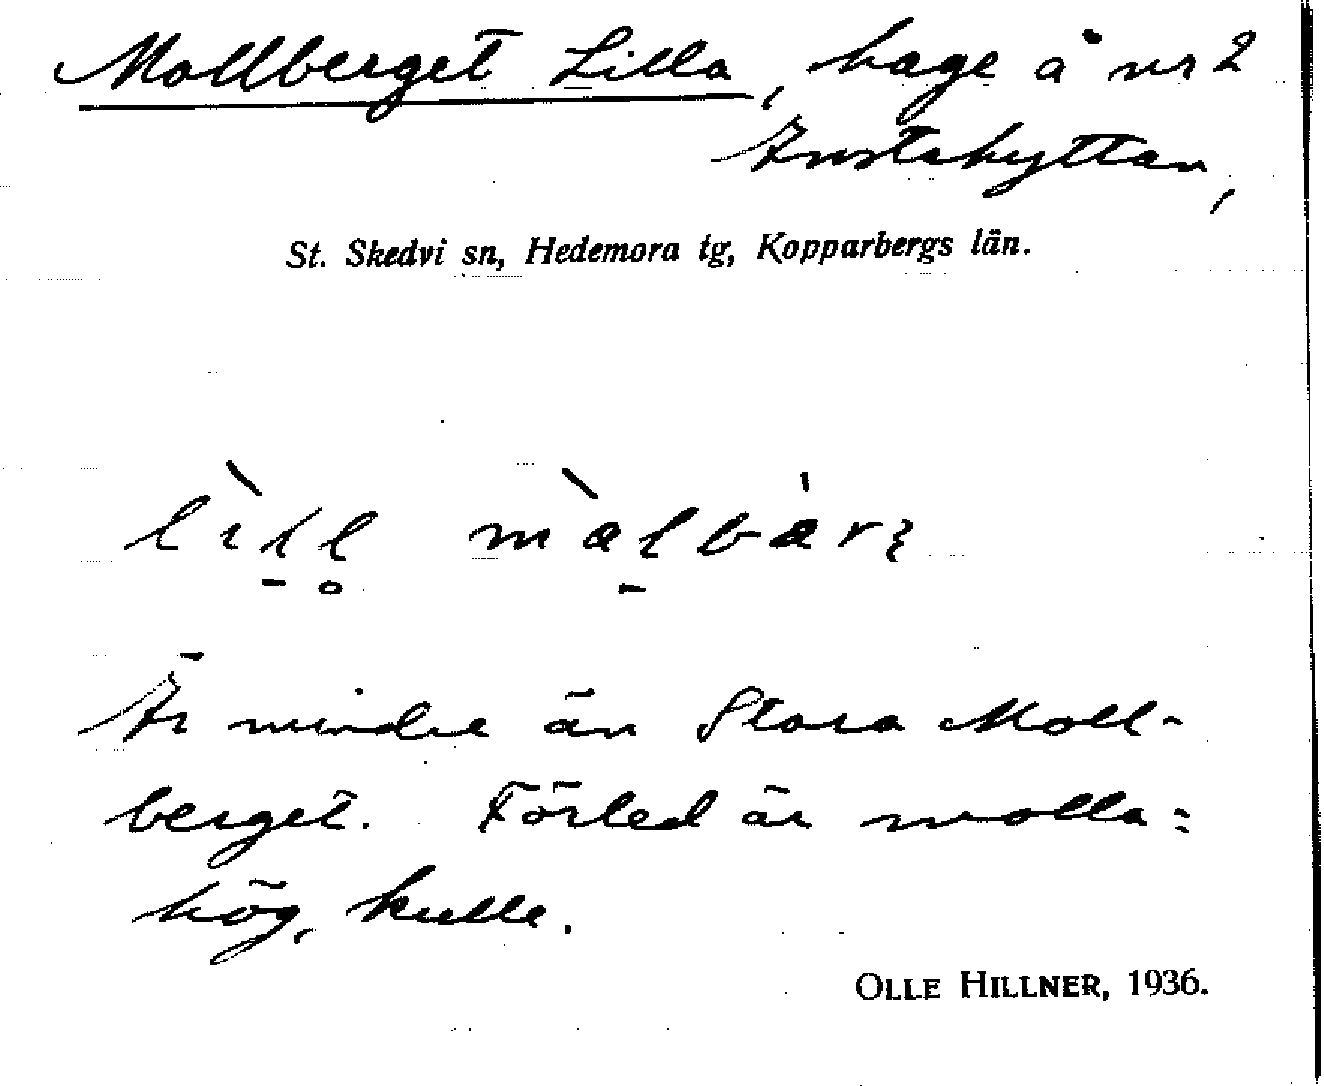 Mollberget Lilla, hage å nr 2
Anstahyttan,
St. Skedvi sn, Hedemora tg, Kopparbergs län.
Är mindre än Stora Moll-
berget. Förled är molla:
hög, kulle.
OLLE HILLNER, 1936.